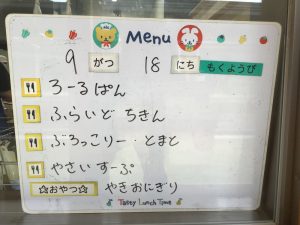 Menu
9 がつ 18 にち もくようび
ろーるぱん
ふらいど ちきん
ぶろっこりー・とまと
やさい すーぷ
☆おやつ☆ やきおにぎり
Tasty Lunch Time